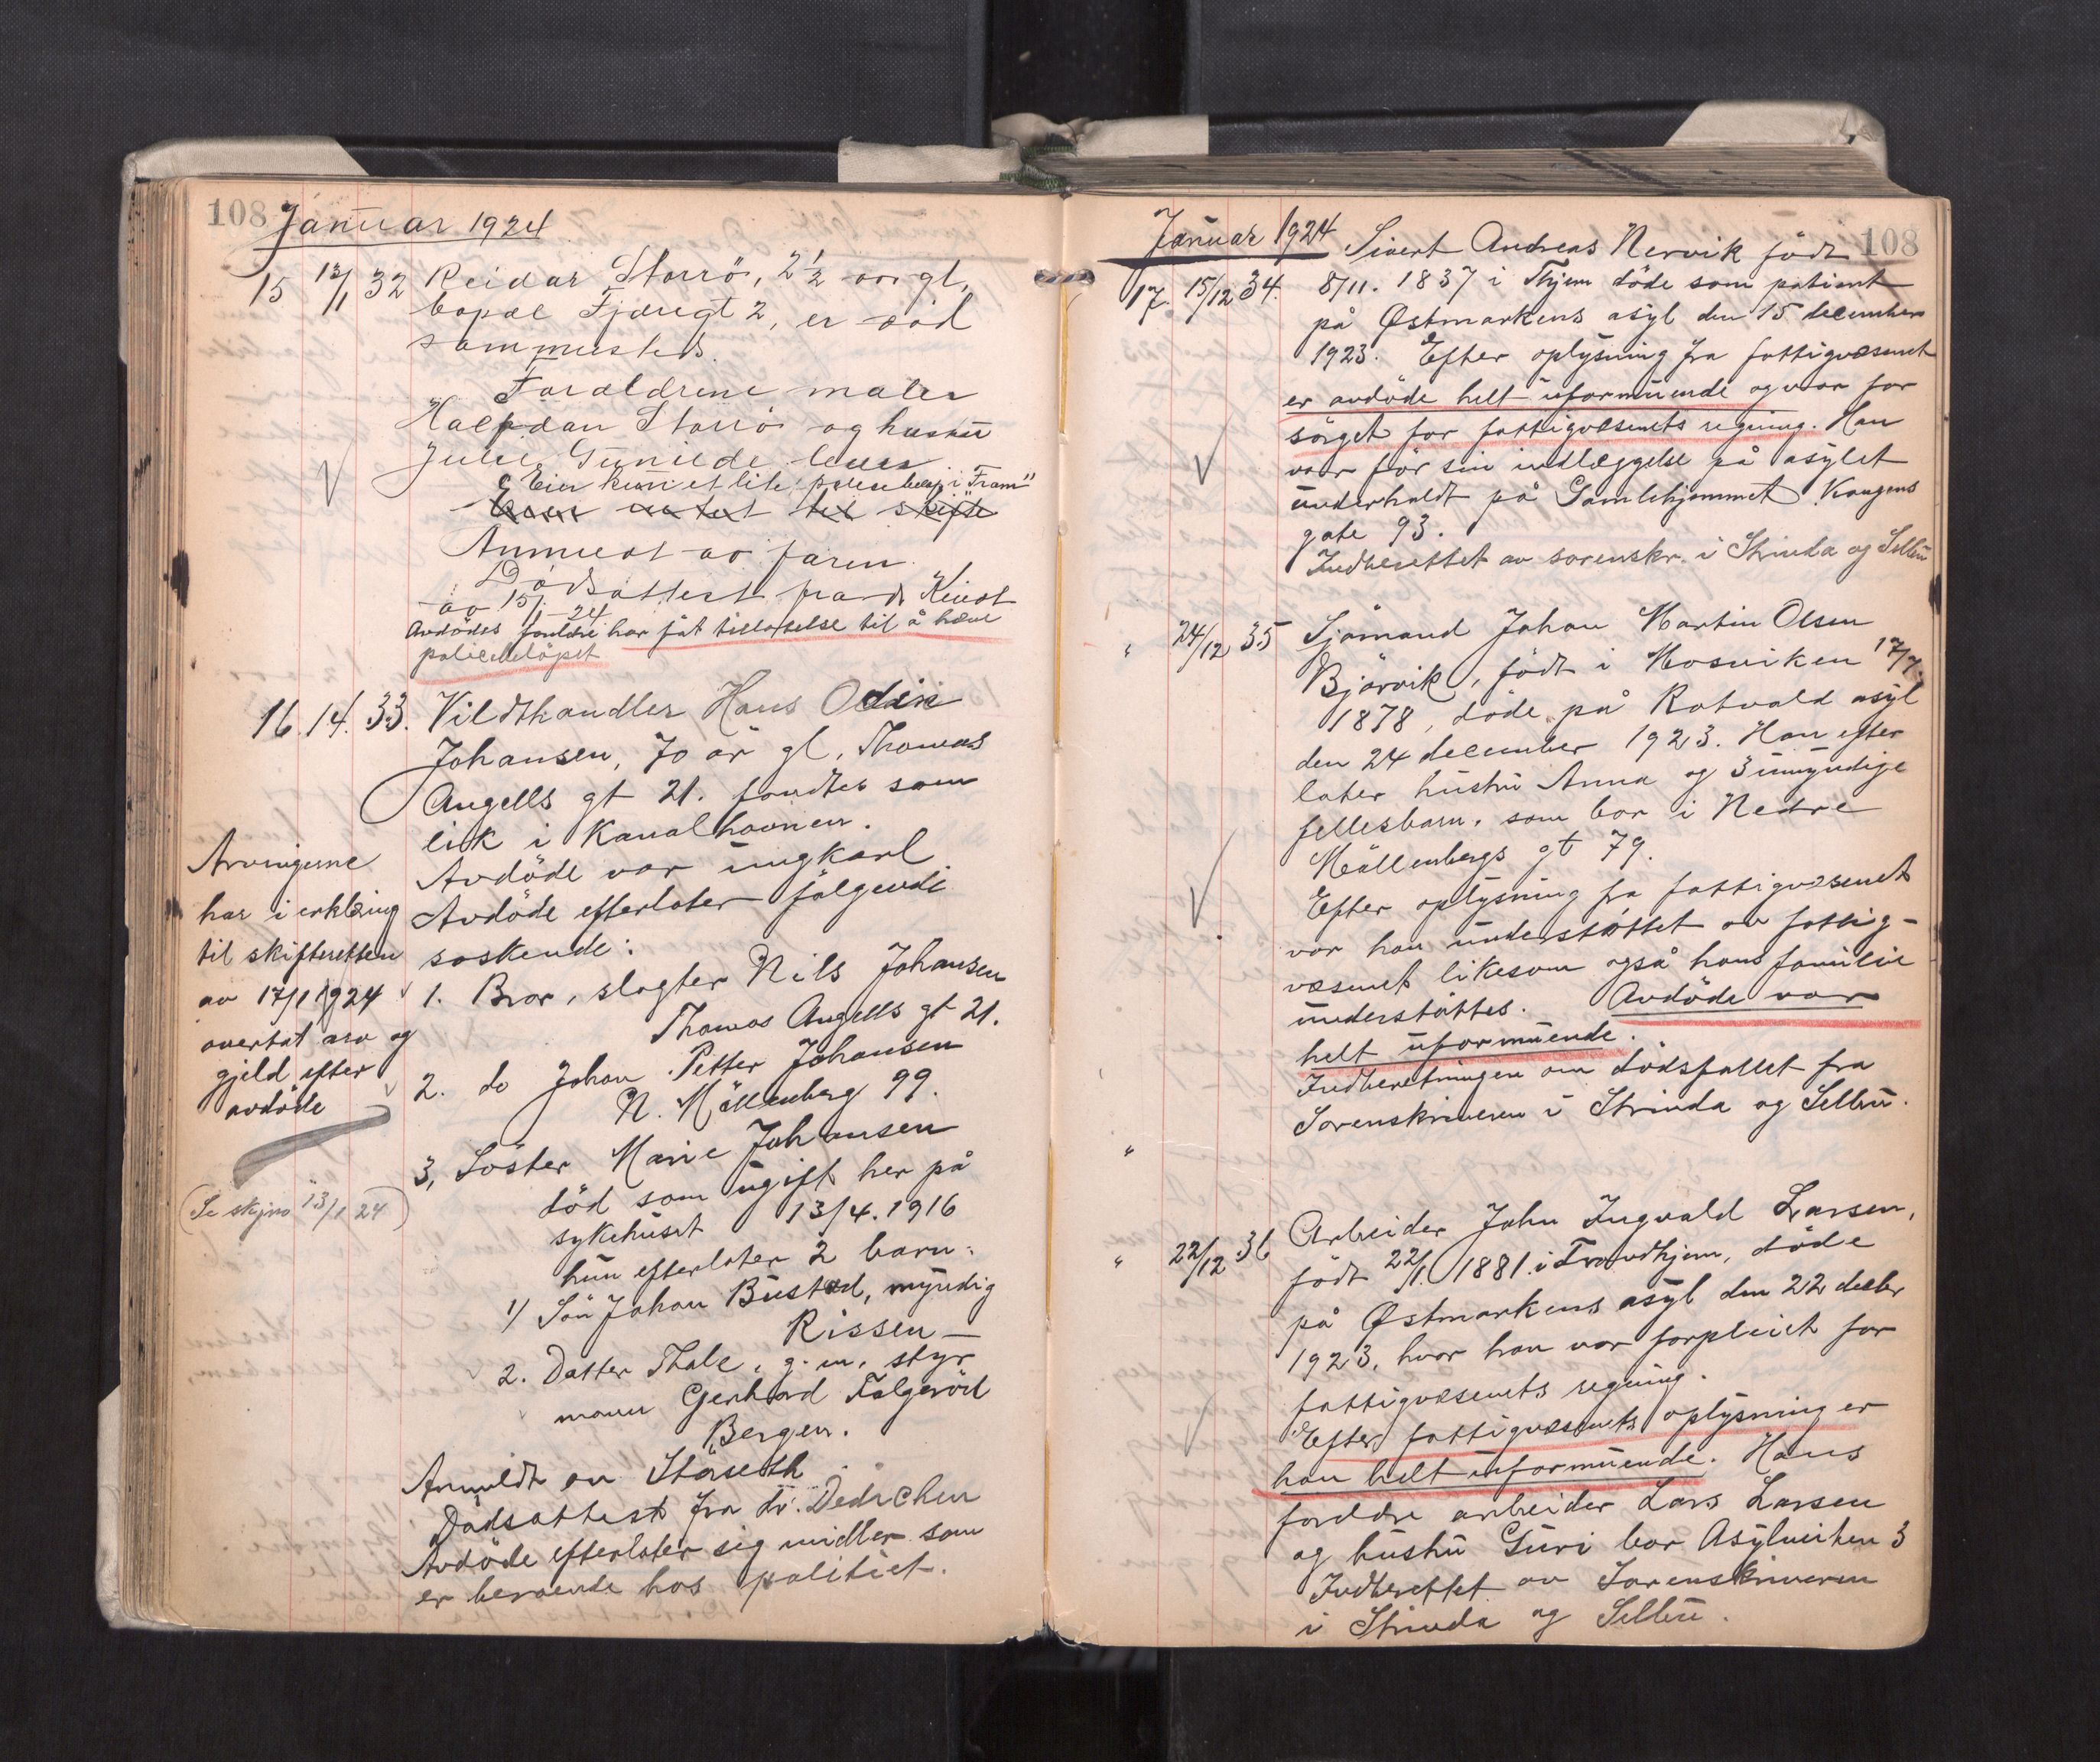 108 Januar 1924
15 13/1 32 Reidar Storrö, 2 1/2 år gl.
bopæl Fjæregt 2, er död
sammesteds.
Foræld­rene maler
Halfdan Storrö og hustru
Julie Gunilde lever
Eier kun et lite polisebeløp i "Fram"
Anmeldt av faren.
Dödsattest fra dr Kindt
av 15/1-24
Avdödes forældre har fåt tillatelse til å hæve
policebelöpet
16. 14. 33. Vildthandler Hans Odin
Johansen, 70 år gl, Thomas
Angells gt 21. fandtes som
lik i Kanalhavnen.
Avdöde var ungkarl
Avdöde efterlater fölgende
söskende:
1. Bror, slagter Nils Johansen
Thomas Angells gt 21.
2. do Johan Petter Johansen
N. Möllenberg 99.
3, Söster Marie Johansen
död som ugift her på
sykehuset 13/4.1916
hun efterlater 2 barn:
1/ Sön Johan Bustad, myndig
Rissen—
2. Datter Thale, g. m. styr
mann Gerhard Folgeröd
Bergen.
Anmeldt av Störseth
Dödsattest fra dr. Dedichen
Avdöde efterlater sig midler som
er beroende hos politiet.
Arvingerne
har i erklæring
til skifteretten
av 17/1 1924
overtat arv og
gjeld efter
avdöde
(Se skjmo 13/1 24)
Januar 1924 108
17. 15/12 34. Sivert Andreas Nervik född
8/11. 1837 i Thjem döde som patient
på Østmarkens asyl den 15 december
1923. Efter oplysning fra fattigvæsenet
er avdöde helt uformuende og var for
sörget for fattigvæsenets regning. Han
var för sin indlæggelse på asylet
underholdt på Gamlehjemmet Kongens
gate 93.
Indberettet av sorenskr. i Strinda og Selbu
" 24/12 35 Sjömand Johan Martin Olsen
Bjørvik, født i Mosviken 17/7
1878, döde på Rotvold asyl
den 24 december 1923. Han efter
later hustru Anna og 3 umyndige
fellesbarn, som bor i Nedre
Möllenbergs gt 79.
Efter oplysning fra fattigvæsenet
var han understøttet av fattig-
væsenet likesom også hans familie
understøttes. Avdöde var
helt uformuende.
Indberetningen om dödsfallet fra
Sorenskriveren i Strinda og Selbu.
"
" 22/12 36 Arbeider John Ingvald Larsen,
født 22/1. 1881. i Trondhjem, döde
på Østmarkens asyl den 22 decbr
1923, hvor han var forpleiet for
fattigvæsenets regning.
Efter fattigvæsenets oplysning er
han helt uformuende. Hans
foreldre arbeider Lars Larsen
og hustru Guri bor Asylveiten 3
Indberettet av Sorenskriveren
i Strinda og Selbu.